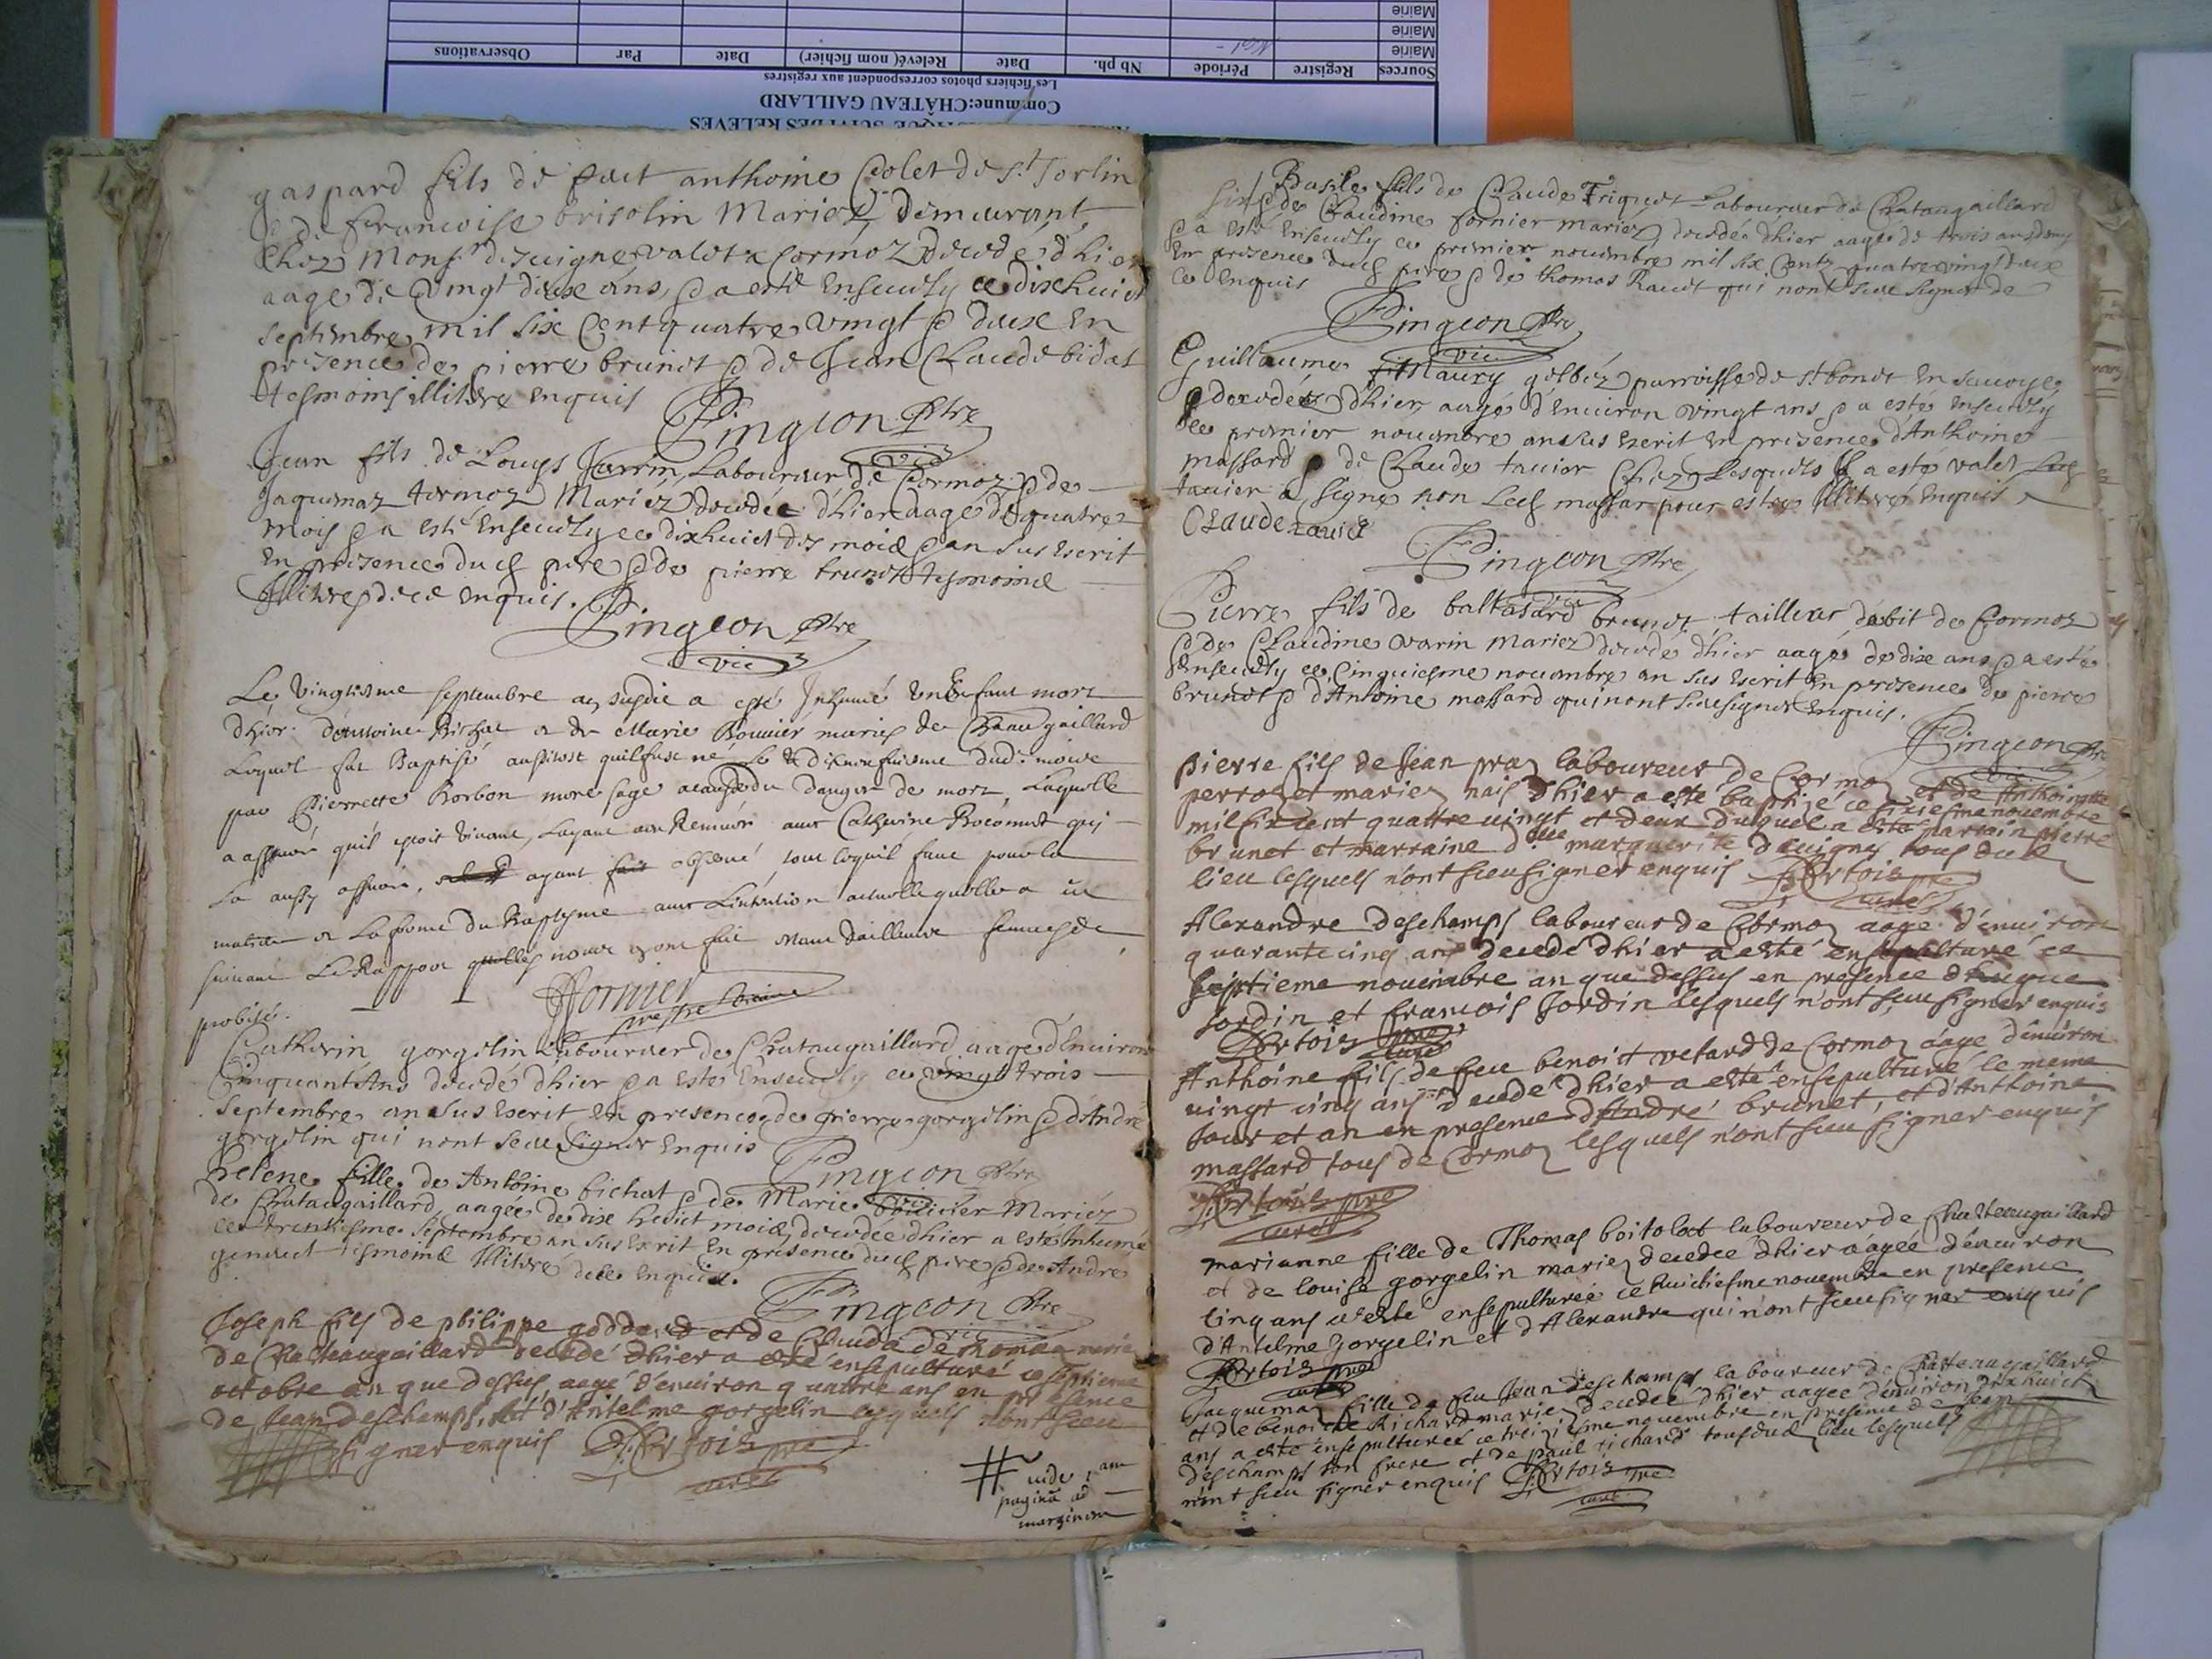 Mairie
Mairie
Mairie
Sources Registre Période Nb ph. Date Relevé( nom fichier) Date Par Observations
Les fichiers photos correspondent aux registres
Commune:CHÂTEAU GAILLARD
SUIVI DES RELEVES
gaspard fils de anthoine Colet de St Jorlin
de francoise brisolin Mariez demeurant
Chez Monsr valet a Cormoz decedé d'hier
aage de vingt deux ans, a esté Ensevely ce dixhuict
Septembre mil six Cent quatre vingt deux En
presence de pierre brunet de Jean Claude bidat
tesmoins illitere enquis
Pingeon ptre
vic
Jean fils de Louys Jarrin Laboureur de Cormoz de
Jaquemaz tormoz Mariez decedée d'hier aage de quatre
Mois a esté Ensevely ce dixhuict des mois an sus Escrit
En presence du pere de pierre brunet tesmoins
Illitere de ce enquis.
Pingeon ptre
vic
Le vingtiesme septembre an susdit a esté Inhumé un Enfant mort
d'hier d'Antoine Bichat et de Marie Bouuier mariés de Chataugaillard
Lequel fut Baptisé aussitost quil fust né le dixneufuiesme dud. mois
par Pierrette Borbon mere sage a cause du danger de mort, Laquelle
a assuré quil estoit vivant, Layant veu Remuer avec Catherine qui
La aussy assuré, ayant observé, tout ce quil faut pour la
matiere et La forme du Baptesme avec Lintention actuelle quelle a
suivant Le Rapport quelles nous ont fait estant dailleurs femmes de
probité.
Fornier
prestre vicaire
Catherin gorgelin Laboureur de Chataugaillard aage d'Environ
Cinquant'Ans decedé d'hier a esté Ensevely ce vingt trois
Septembre an sus Escrit En presence de pierre gorgelin d'André
gorgelin qui n'ont sceu Signer Enquis
Pingeon ptre
helene fille de Antoine bichat de Marie Mariez
de Chataugaillard aagee de dix huict mois, decedée d'hier a esté Inhumé
ce trentiesme Septembre an sus Escrit En presence du pere de Andre
tesmoins Illiteré de ce Enquis.
Pingeon ptre
vic
Joseph fils de philippe goddard et de Claude de thomas mariés
de Chasteaugaillard decedé d'hier a esté ensepulturé ce septieme
octobre an que dessus, aagé d'enuiron quattre ans en presence
de Jean deschamps, et d'Antelme gorgelin lesquels n'ont sceu
signer enquis
curé
# vide
pagina ad
marginem
Basile fils de Claude Triquet Laboureur de Chataugaillard
de Claudine fornier mariez, decedée d'hier aage de trois ans
a esté Ensevely ce premier novembre mil six Centz quatre vingt deux
En presence du pere de thomas Raudt qui n'ont sceu Signer de
ce Enquis
Pingeon ptre
vic
Guillaume parroisse de St bonet En Savoye
decedée d'hier, aagé d'Environ vingt ans a esté ensevely
ce premier nouembre an sus Escrit En presence d'Anthoine
massard de Claude tauier Chez Lesquels Il a esté valet
tauier a signé non massar pour estre Illiteré Enquis
Claude tauier
Pingeon ptre
Pierre fils de baltasard brunet tailleur d'abit de Cormoz
de Claudine varin Mariez decedé d'hier aagé de dix ans a esté
Ensevely ce Cinquiesme nouembre an sus Escrit En presence de pierre
brunet d'Antoine massard qui n'ont sceu signer Enquis.
Pingeon ptre
vic
pierre fils de Jean praz laboureur de Cormoz et de Anthoinette
perrozet mariez nais d'hier a esté baptizé ce sixiesme nouembre
mil six cent quattre vingt et deux duquel a esté parrain pierre
brunet et marraine dlle marguerite tous du
lieu lesquels n'ont sceu signer enquis
curé
Alexandre deschamps laboureur de Cormoz aagé d'enuiron
quarante cinq ans decedé d'hier a esté ensepulturé ce
septieme nouembre an que dessus en presence
Jordin et francois Jordin lesquels n'ont sceu signer enquis
curé
Anthoine fils de feu benoist velard de Cormoz aage d'enuiron
vingt cinq ans decedé d'hier a esté ensepulturé le meme
Jour et an en presence d'André brunet, et d'Anthoine
massard tous de Cormoz lesquels n'ont sceu signer enquis
curé
marianne fille de Thomas boitolet laboureur de Chasteaugaillard
et de louise gorgelin mariez decedée d'hier aagée d'enuiron
cinq ans a esté ensepulturée ce huictiesme nouembre en presence
d'Antelme gorgelin et d'Alexandre qui n'ont sceu signer enquis
curé
Jacquemaz fille de feu Jean deschamps laboureur de Chasteaugaillard
et de benoiste Richard mariez decedée d'hier aagee d'enuiron dixhuict
ans a esté ensepulturee ce treiziesme nouembre en presence de Jean
deschamps son frere et de paul richard tous du lieu lesquels
n'ont sceu signer enquis
curé